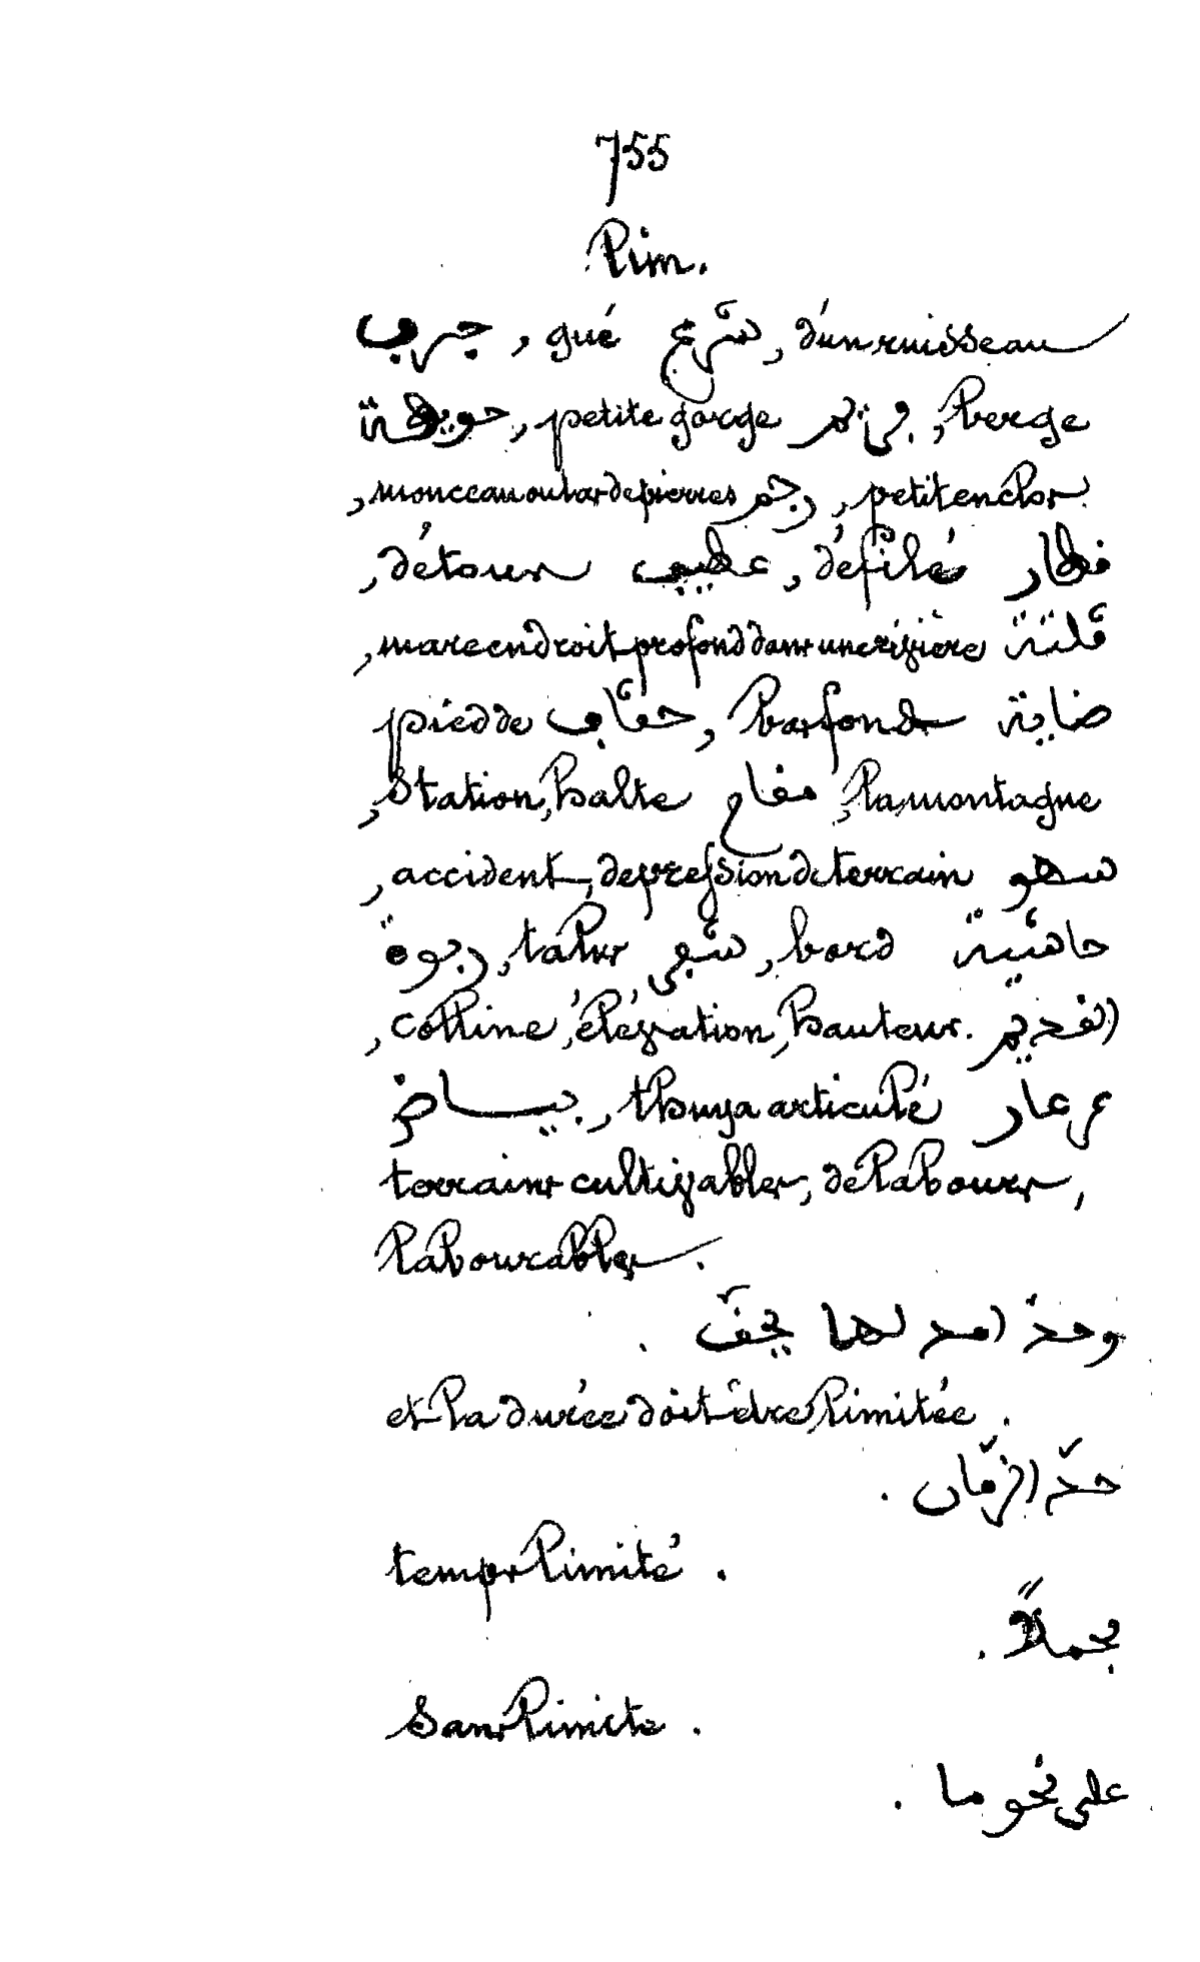 755
Lim.
جرف, gué شرع, d'un ruisseau
حويطة, petite gorge, berge
, monceau ou tas de pierres رجم, petit enclos
, détour عطيب, défilé فطار
, mare endroit profond dans une rizière فلتة
pied de حفاب, bas fond ضاية
, Station, halte مقام, la montagne
, accident, depression de terrain سهو
ربوة, talus شعى, bord حاشية
, colline, élévation, hauteur. الفديم
بياض, thuya articulé عرعار
terrains cultivables, de labours,
labourables.
وحدّ امد لها يخفّ .
et la durée doit être limitée .
حدّ الزمان .
temps limité .
مجملاً .
Sans limite .
على نحو ما .